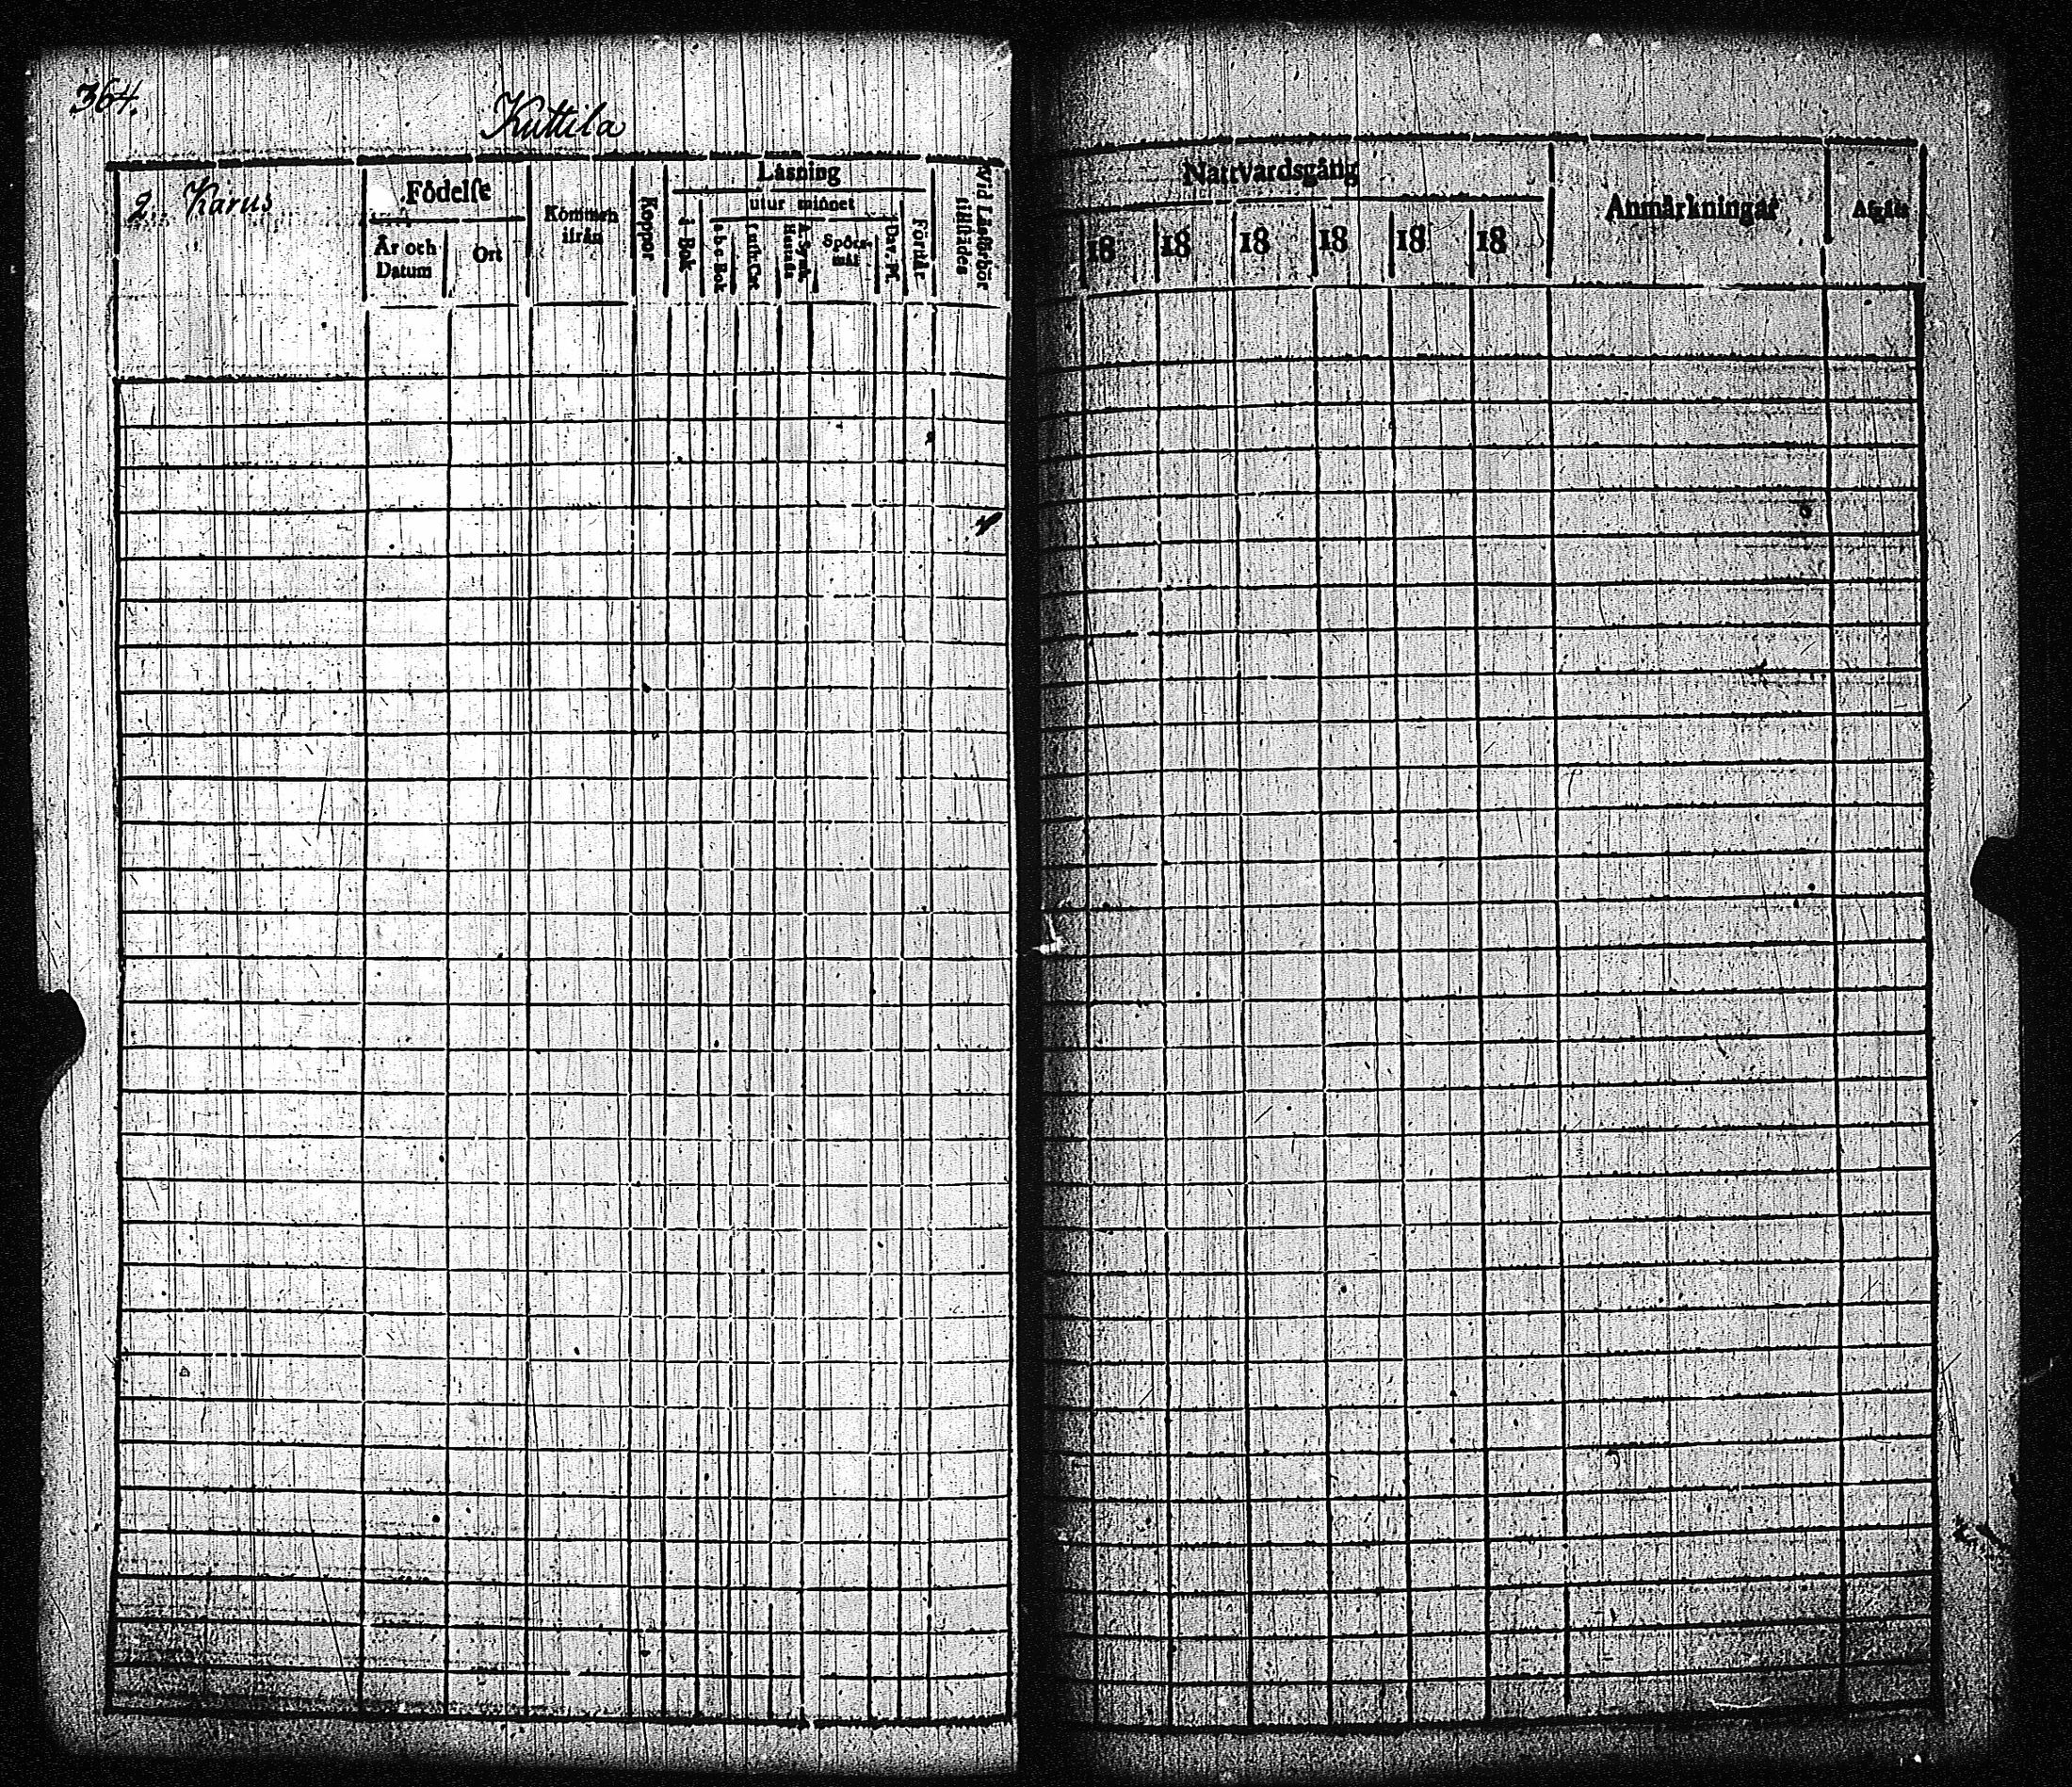 364.
Kuttila
2. Karus
Födelſe
År och Datum
Ort
Kommen ifrån
Koppor
Läsning
utur minnet
i Bok
a b c Bok
Luth. Cat
A. Symb. Hustafla
Spörsmål
Dav. Ps.
Förstår
Vid Läsförhör tillstädes
Nattvardsgång
18 18 18 18 18 18
Anmärkningar
Afgått